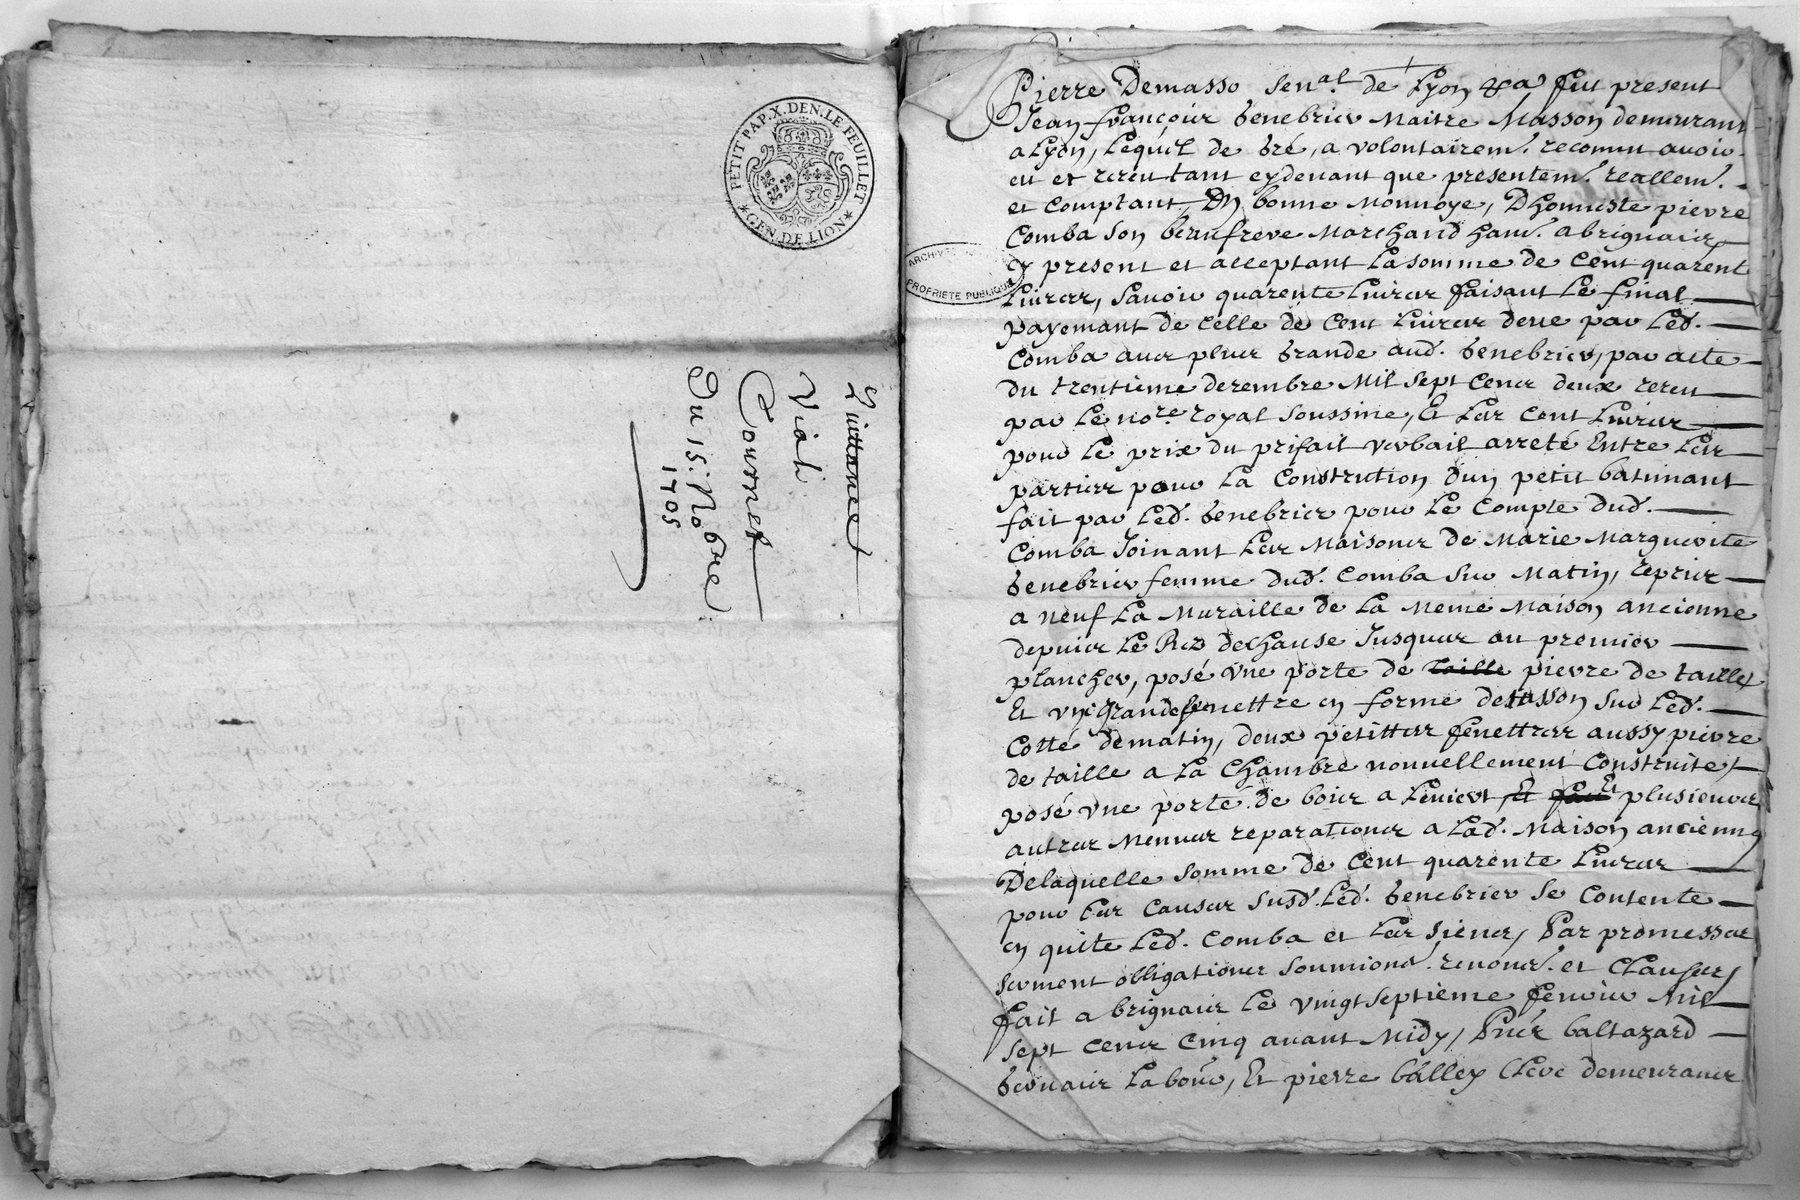 PETIT PAP. X. DEN. LE FEUILLET
* GEN. DE LION *
Quittance
Viali
Cournet
Du 15. No bre
1705
Pierre Demasso Sen.al de Lyon &a fut present
Jean françois benebrier Maitre Masson demeurant
a Lyon, Lequel de gré, a volontairem.t reconnu avoir
eu et receu tant cydevant que presentem.t reallem.t
et comptant En bonne Monnoye, D'honneste pierre
Comba Son beaufrere Marchand hant. a brignais
cy present et acceptant La somme de Cent quarent
Livres, Savoir quarente Livres faisant Le final
payemant de Celle de Cent Livres deue par Led.
Comba avec plus grande aud. benebrier, par acte
du trentieme decembre Mil Sept Cens deux receu
par Le no.re royal Soussine, Et Les Cent Livres
pour Le prix du prifait verbail arreté Entre Les
parties pour La Construction d'un petit batimant
fait par Led. benebrier pour Le Compte dud.
Comba Joinant Les Maisons de Marie Marguerite
benebrier femme dud. Comba Sur Matin, repris
a neuf La Muraille de La Meme Maison ancienne
depuis Le Rez dechause Jusques au premier
plancher, posé Une porte de taille pierre de taille
Et une grande fenettre en forme de Sur Led.
Cotté de matin, deux petittes fenettres aussy pierre
de taille a La Chambre nouvellement Construite,
posé Une porte de bois a Et Et plusieurs
autres Menues reparations a Lad. Maison ancienne
De laquelle Somme de Cent quarente Livres
pour Les Causes Susd. Led. benebrier Se Contente
en quite Led. Comba et Les Siens, Par promesses
serment obligations Soumions. renons. et Clauses
fait a brignais Le vingt Septieme fevrier Mil
Sept Cens Cinq avant Midy, P.ns baltazard
Labour, Et pierre balley Clerc demeurans
ARCHIV
PROPRIETE PUBLIQUE